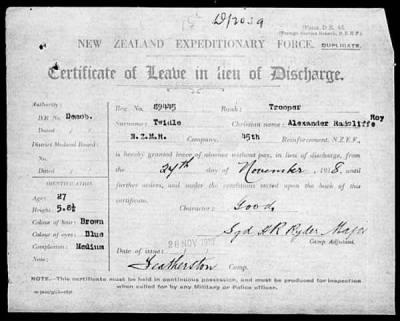 D/7059
(Form D.R. 45.
NEW ZEALAND EXPEDITIONARY FORCE. DUPLICATE.
Certificate of Leave in lieu of Discharge.
Authority:
Reg. No. 59445 Rank: Trooper
D.R.No. Demob.
Surname: Twidle Christian name: Alexander Radcliffe Roy
Dated /
N.Z.M.R. Company. 45th Reinforcements, N.Z.E.F.,
District Medical Board:
is hereby granted leave of absence without pay, in lieu of discharge, from
Dated /
the 24th day of November, 1918, until
further orders, and under the conditions stated upon the back of this
IDENTIFICATION
certificate.
Age: 27
Character: Good,
Height: 5.6½
Colour of hair: Brown
Sgd Ryder Major
Colour of eyes: Blue
Camp Adjutant.
Complexion: Medium
Date of issue: 28 NOV
Featherston Camp.
NOTE.—This certificate must be held in continuous possession, and must be produced for inspection
when called for by any Military or Police officer.